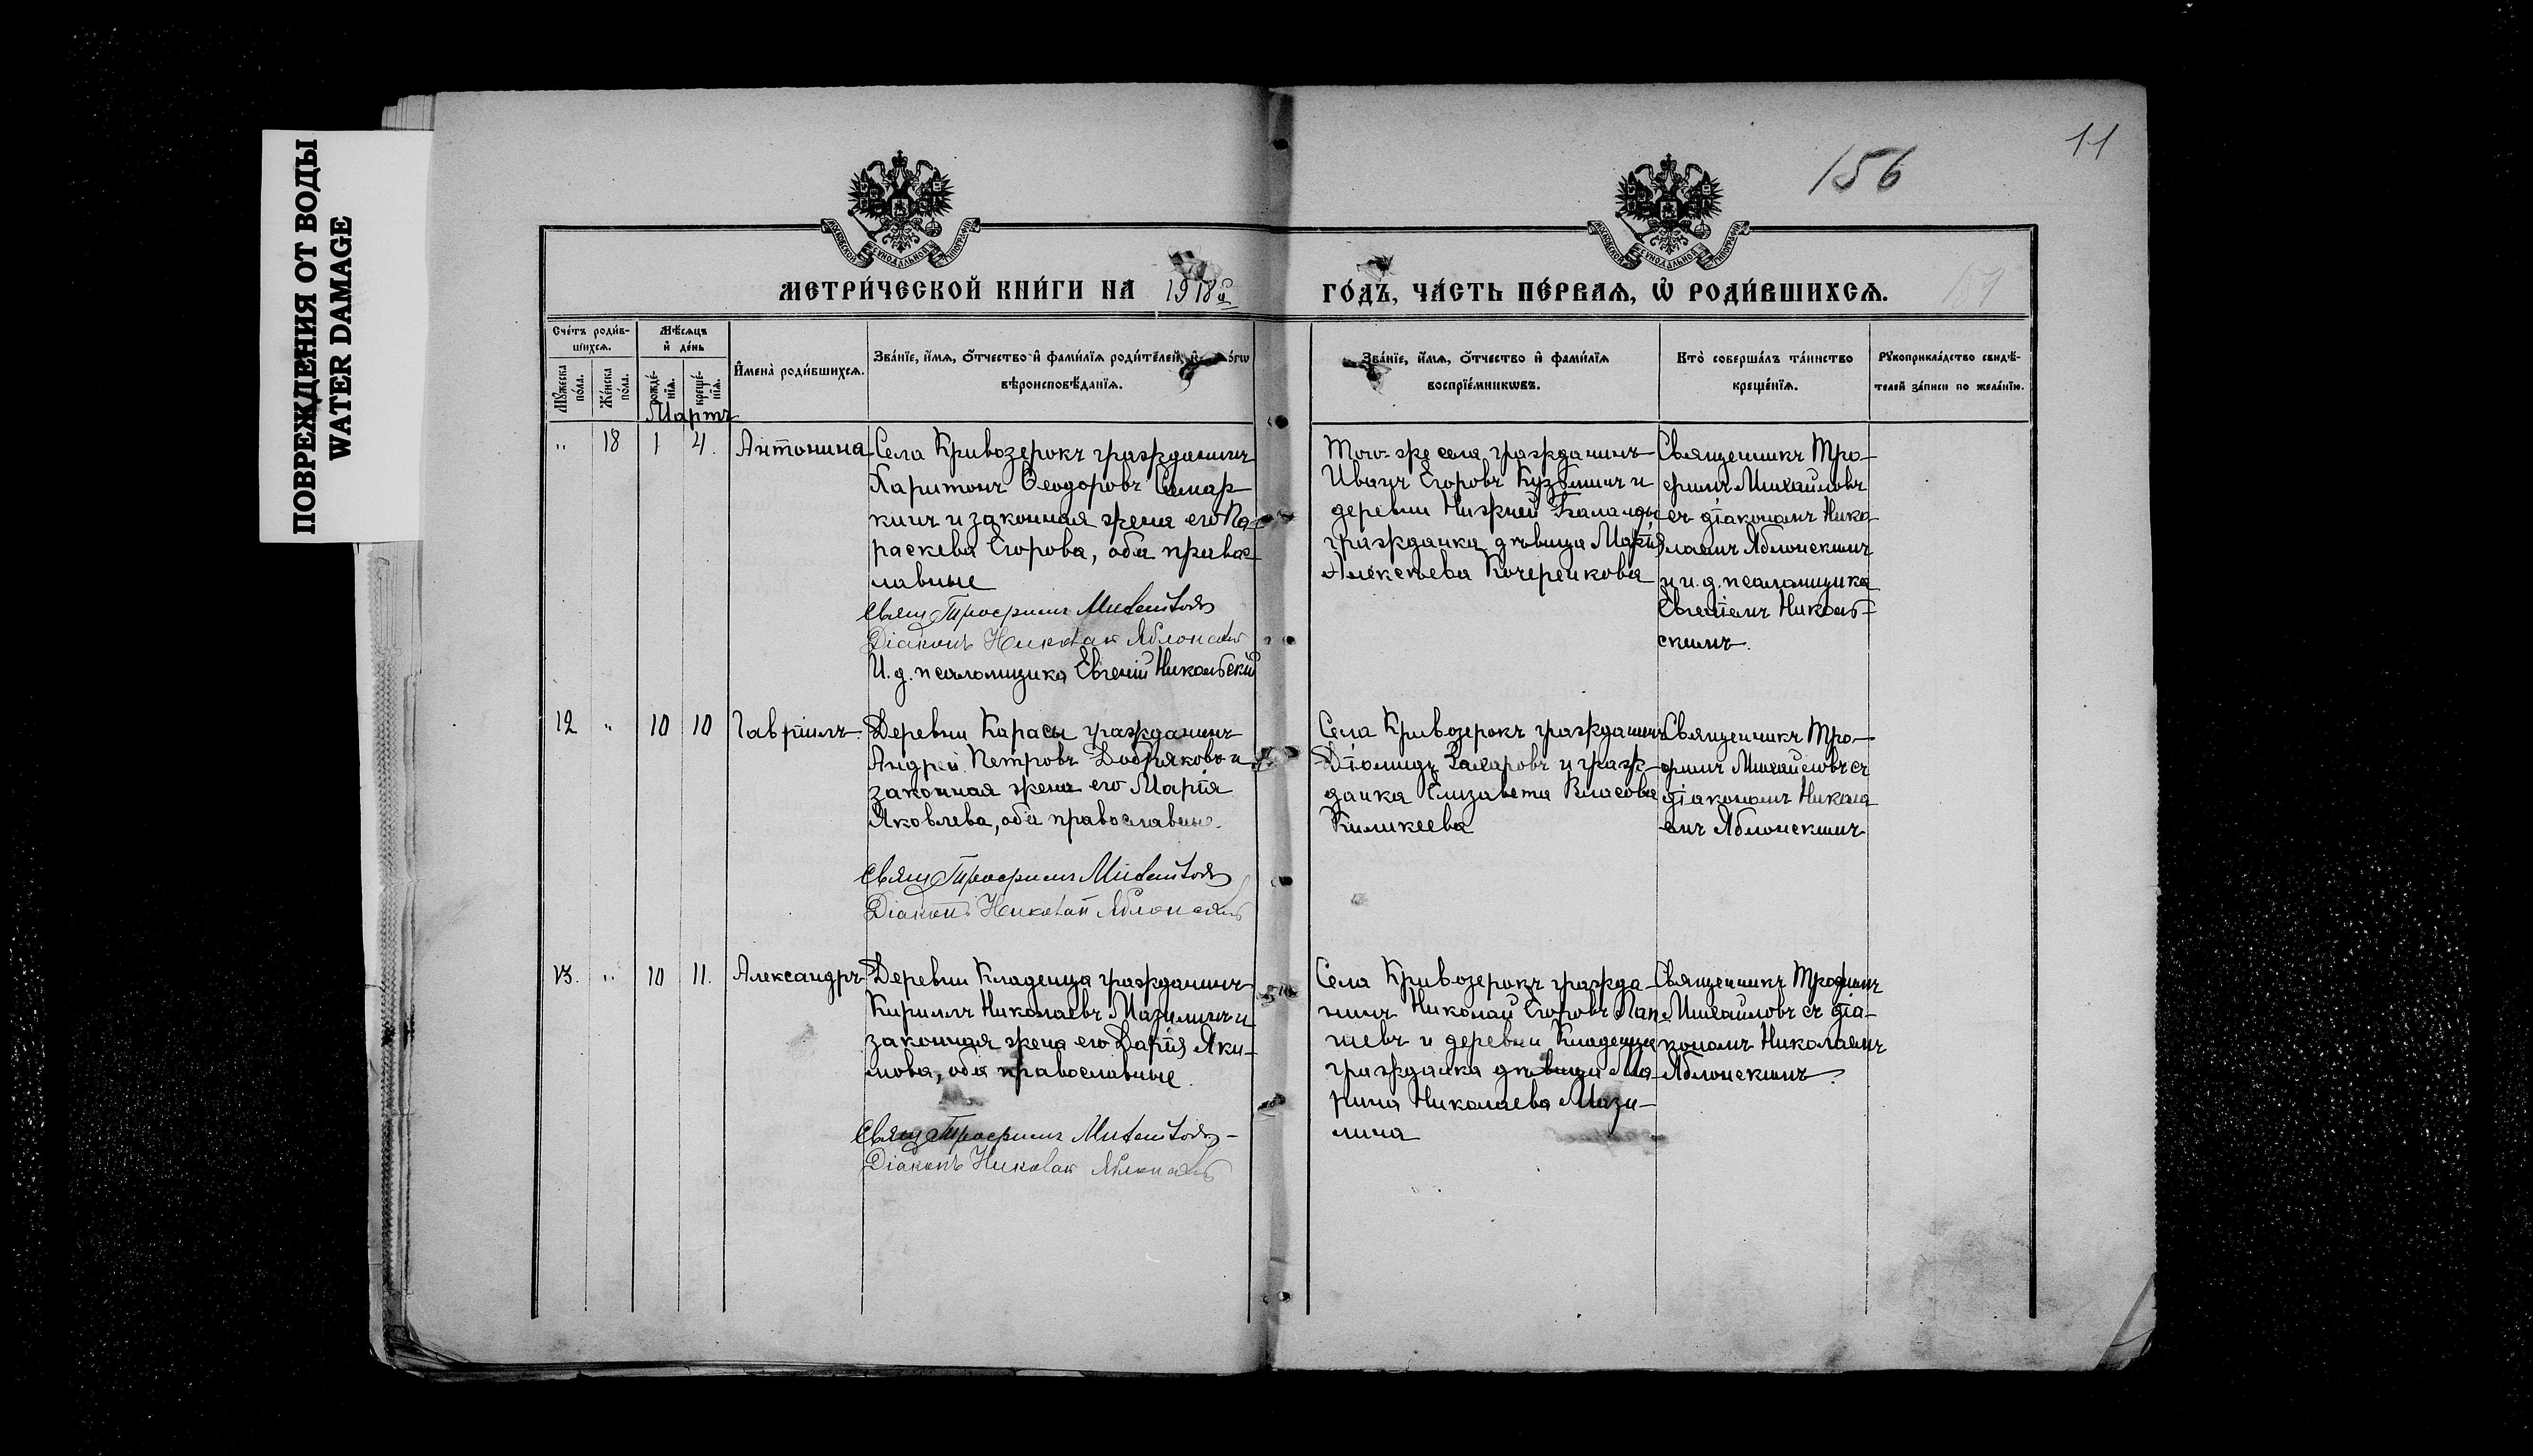 ПОВРЕЖДЕНИЯ ОТ ВОДЫ
WATER DAMAGE
11
156
МОСКОВСКОЙ СѴНОДАЛЬНОЙ ТИПОГРАФІИ
МОСКОВСКОЙ СѴНОДАЛЬНОЙ ТИПОГРАФІИ
МЕТРИ́ЧЕСКОЙ КНИ́ГИ НА 1918й ГО́ДЪ, ЧА́СТЬ ПЕ́РВАЯ, Ѡ РОДИ́ВШИХСЯ.
Сче́тъ роди́в-
шихся.
Мѣ́сяцъ
и҆ де́нь
И҆мена̀ роди́вшихся.
Зва́нїе, и҆́мя, ѻ҆́тчество и҆ фами́лїя роди́телей, и҆
вѣроисповѣ́данїя.
Зва́нїе, и҆́мя, ѻ҆́тчество и҆ фами́лїя
воспрїе́мниковъ.
Кто̀ соверша́лъ та́инство
креще́нїя.
Рꙋкоприкла́дство свидѣ́-
телей за́писи по жела́нїю.
Мꙋ́жеска
по́ла.
Же́нска
по́ла.
рожде́-
нїя.
креще́-
нїя.
Мартъ
" 18 1 4. Антонина
Села Криvозерокъ гражданинъ
Харитонъ Ѳеодоровъ Семар-
кинъ и законная жена его Па-
раскева Егорова, оба правос-
лавные
Свящ Трофимъ Михайловъ
Діаконъ Николай Яблонскій
И. д. псаломщика Евгеній Никольскій
Того-же села гражданинъ
Иванъ Егоровъ Кузьминъ и
деревни Нижней
гражданка дѣвица Марія
Алексѣева Кочергикова
Священникъ Тро-
фимъ Михайловъ
съ діакономъ Нико-
лаемъ Яблонскимъ
и и. д. псаломщика
Евгеніемъ Николь-
скимъ.
12 " 10 10 Гавріилъ
Деревни Карасы гражданинъ
Андрей Петровъ Добряковъ и
законная жена его Марія
Яковлева, оба православные.
Свящ Трофимъ Михайловъ
Діаконъ Николай Яблонскій
Села Кривозерокъ гражданинъ
Діомидъ Захаровъ и граж-
данка Елизавета Власова
Киликеева
Священникъ Тро-
фимъ Михайловъ съ
діакономъ Никола-
емъ Яблонскимъ
13. " 10 11. Александръ
Деревни Кладенца гражданинъ
Кириллъ Николаевъ Мазилинъ и
законная жена его Дарія Яки-
мова, оба православные.
Свящ Трофимъ Михайловъ
Діаконъ Николай Яблонскій
Села Кривозерокъ гражда-
нинъ Николай Егоровъ Пап-
шевъ и деревни Кладенца
гражданка дѣвица Ма-
рина Николаева Мази-
лина
Священникъ Трофимъ
Михайловъ съ діа-
кономъ Николаемъ
Яблонскимъ.